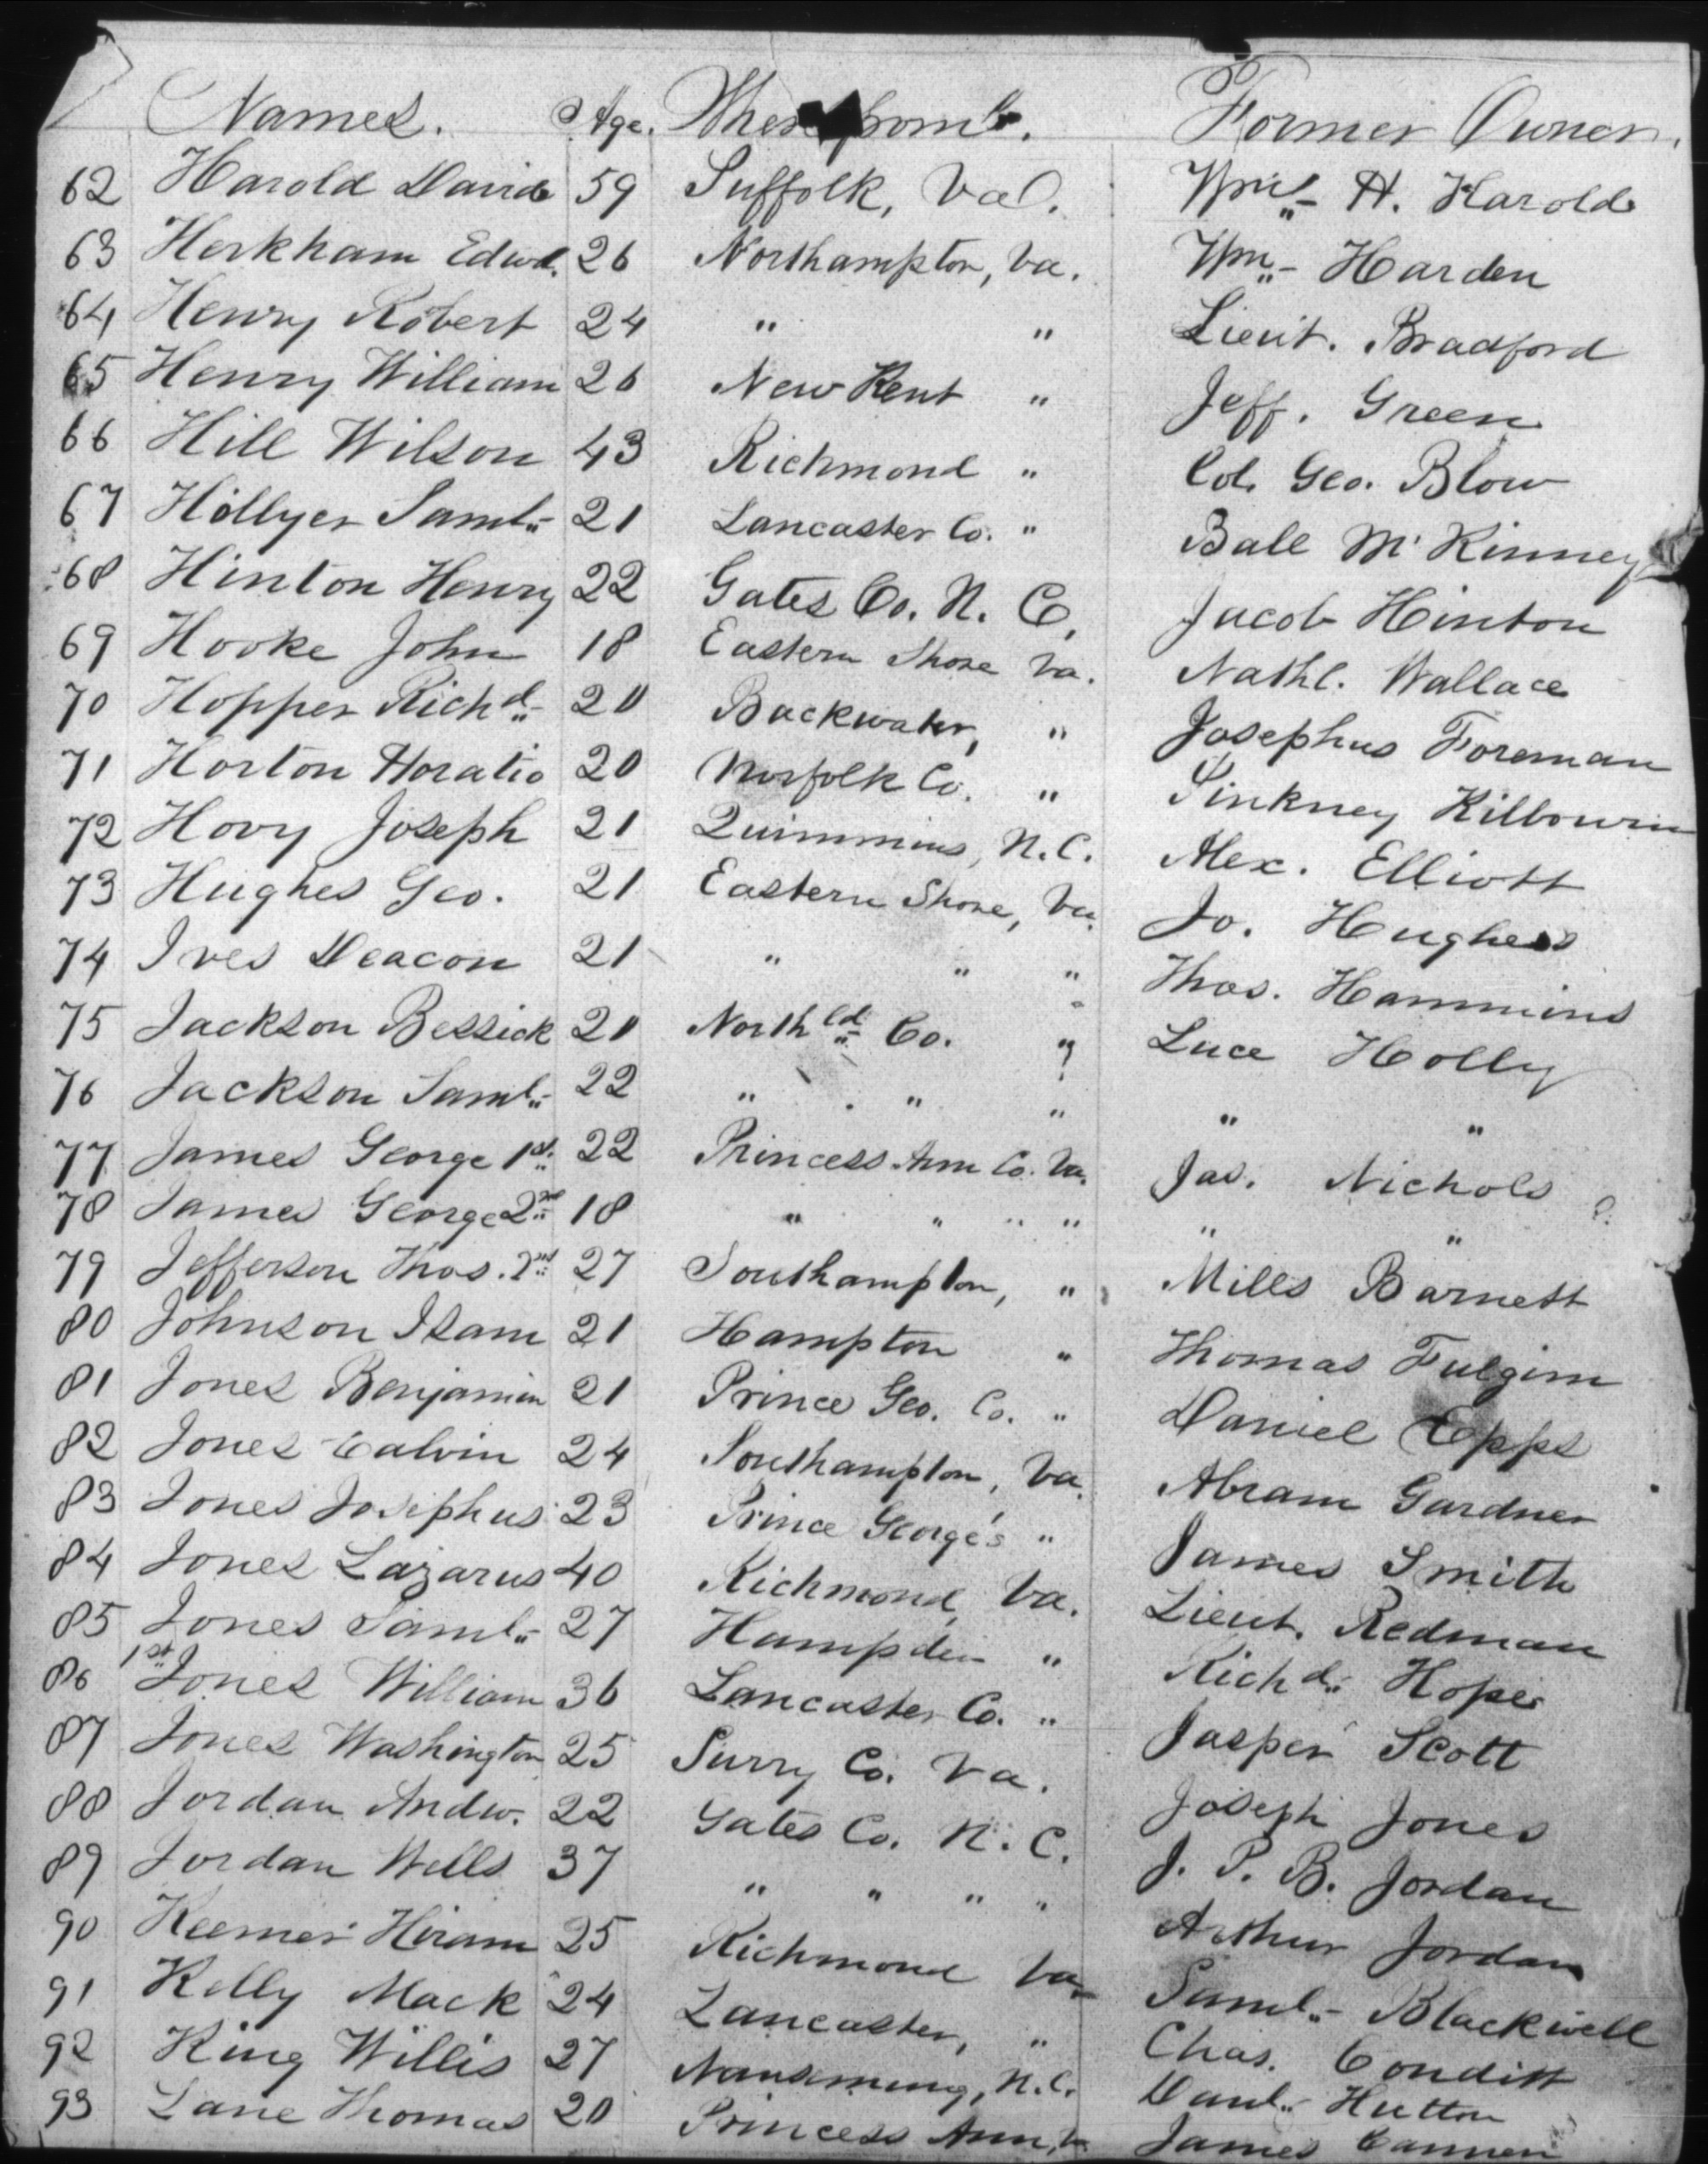 Names. Age. Where from. Former Owner.
62 Harold David 59 Suffolk, Va. Wm. H. Harold
63 Herkham Edwd. 26 Northampton, Va. Wm. Harden
64 Henry Robert 24 " " Lieut. Bradford
65 Henry William 26 New Kent " Jeff. Green
66 Hill Wilson 43 Richmond " Col. Geo. Blow
67 Hollyer Saml. 21 Lancaster Co. " Ball McKinney
68 Hinton Henry 22 Gates Co. N. C. Jacob Hinton
69 Hooke John 18 Eastern Shore Va. Nathl. Wallace
70 Hopper Richd. 20 Backwater, " Josephus Foreman
71 Horton Horatio 20 Norfolk Co. " Pinkney Kilbourn
72 Hovy Joseph 21 Quimmins, N.C. Alex. Elliott
73 Hughes Geo. 21 Eastern Shore, Va. Jo. Hughes
74 Ives Deacon 21 " " " Thos. Hammins
75 Jackson Bessick 21 Northld. Co. " Luce Holly
76 Jackson Saml. 22 " " " " "
77 James George 1st. 22 Princess Ann Co. Va. Jas. Nichols
78 James George 2nd 18 " " " " " "
79 Jefferson Thos. 2nd 27 Southampton, " Mills Barnett
80 Johnson Isam 21 Hampton " Thomas Fulgim
81 Jones Benjamin 21 Prince Geo. Co. " Daniel Epps
82 Jones Calvin 24 Southampton, Va. Abram Gardner
83 Jones Josephus 23 Prince George's " James Smith
84 Jones Lazarus 40 Richmond, Va. Lieut. Redman
85 Jones Saml. 27 Hampden " Richd. Hope
86 1st Jones William 36 Lancaster Co. " Jasper Scott
87 Jones Washington 25 Surry Co. Va. Joseph Jones
88 Jordan Andw. 22 Gates Co. N. C. J. P. B. Jordan
89 Jordan Wells 37 " " " " Arthur Jordan
90 Keemer Hiram 25 Richmond Va. Saml. Blackwell
91 Kelly Mack 24 Lancaster, " Chas. Conditt
92 King Willis 27 Nansemung, N.C. Danl. Hutton
93 Lane Thomas 20 Princess Ann, Va James